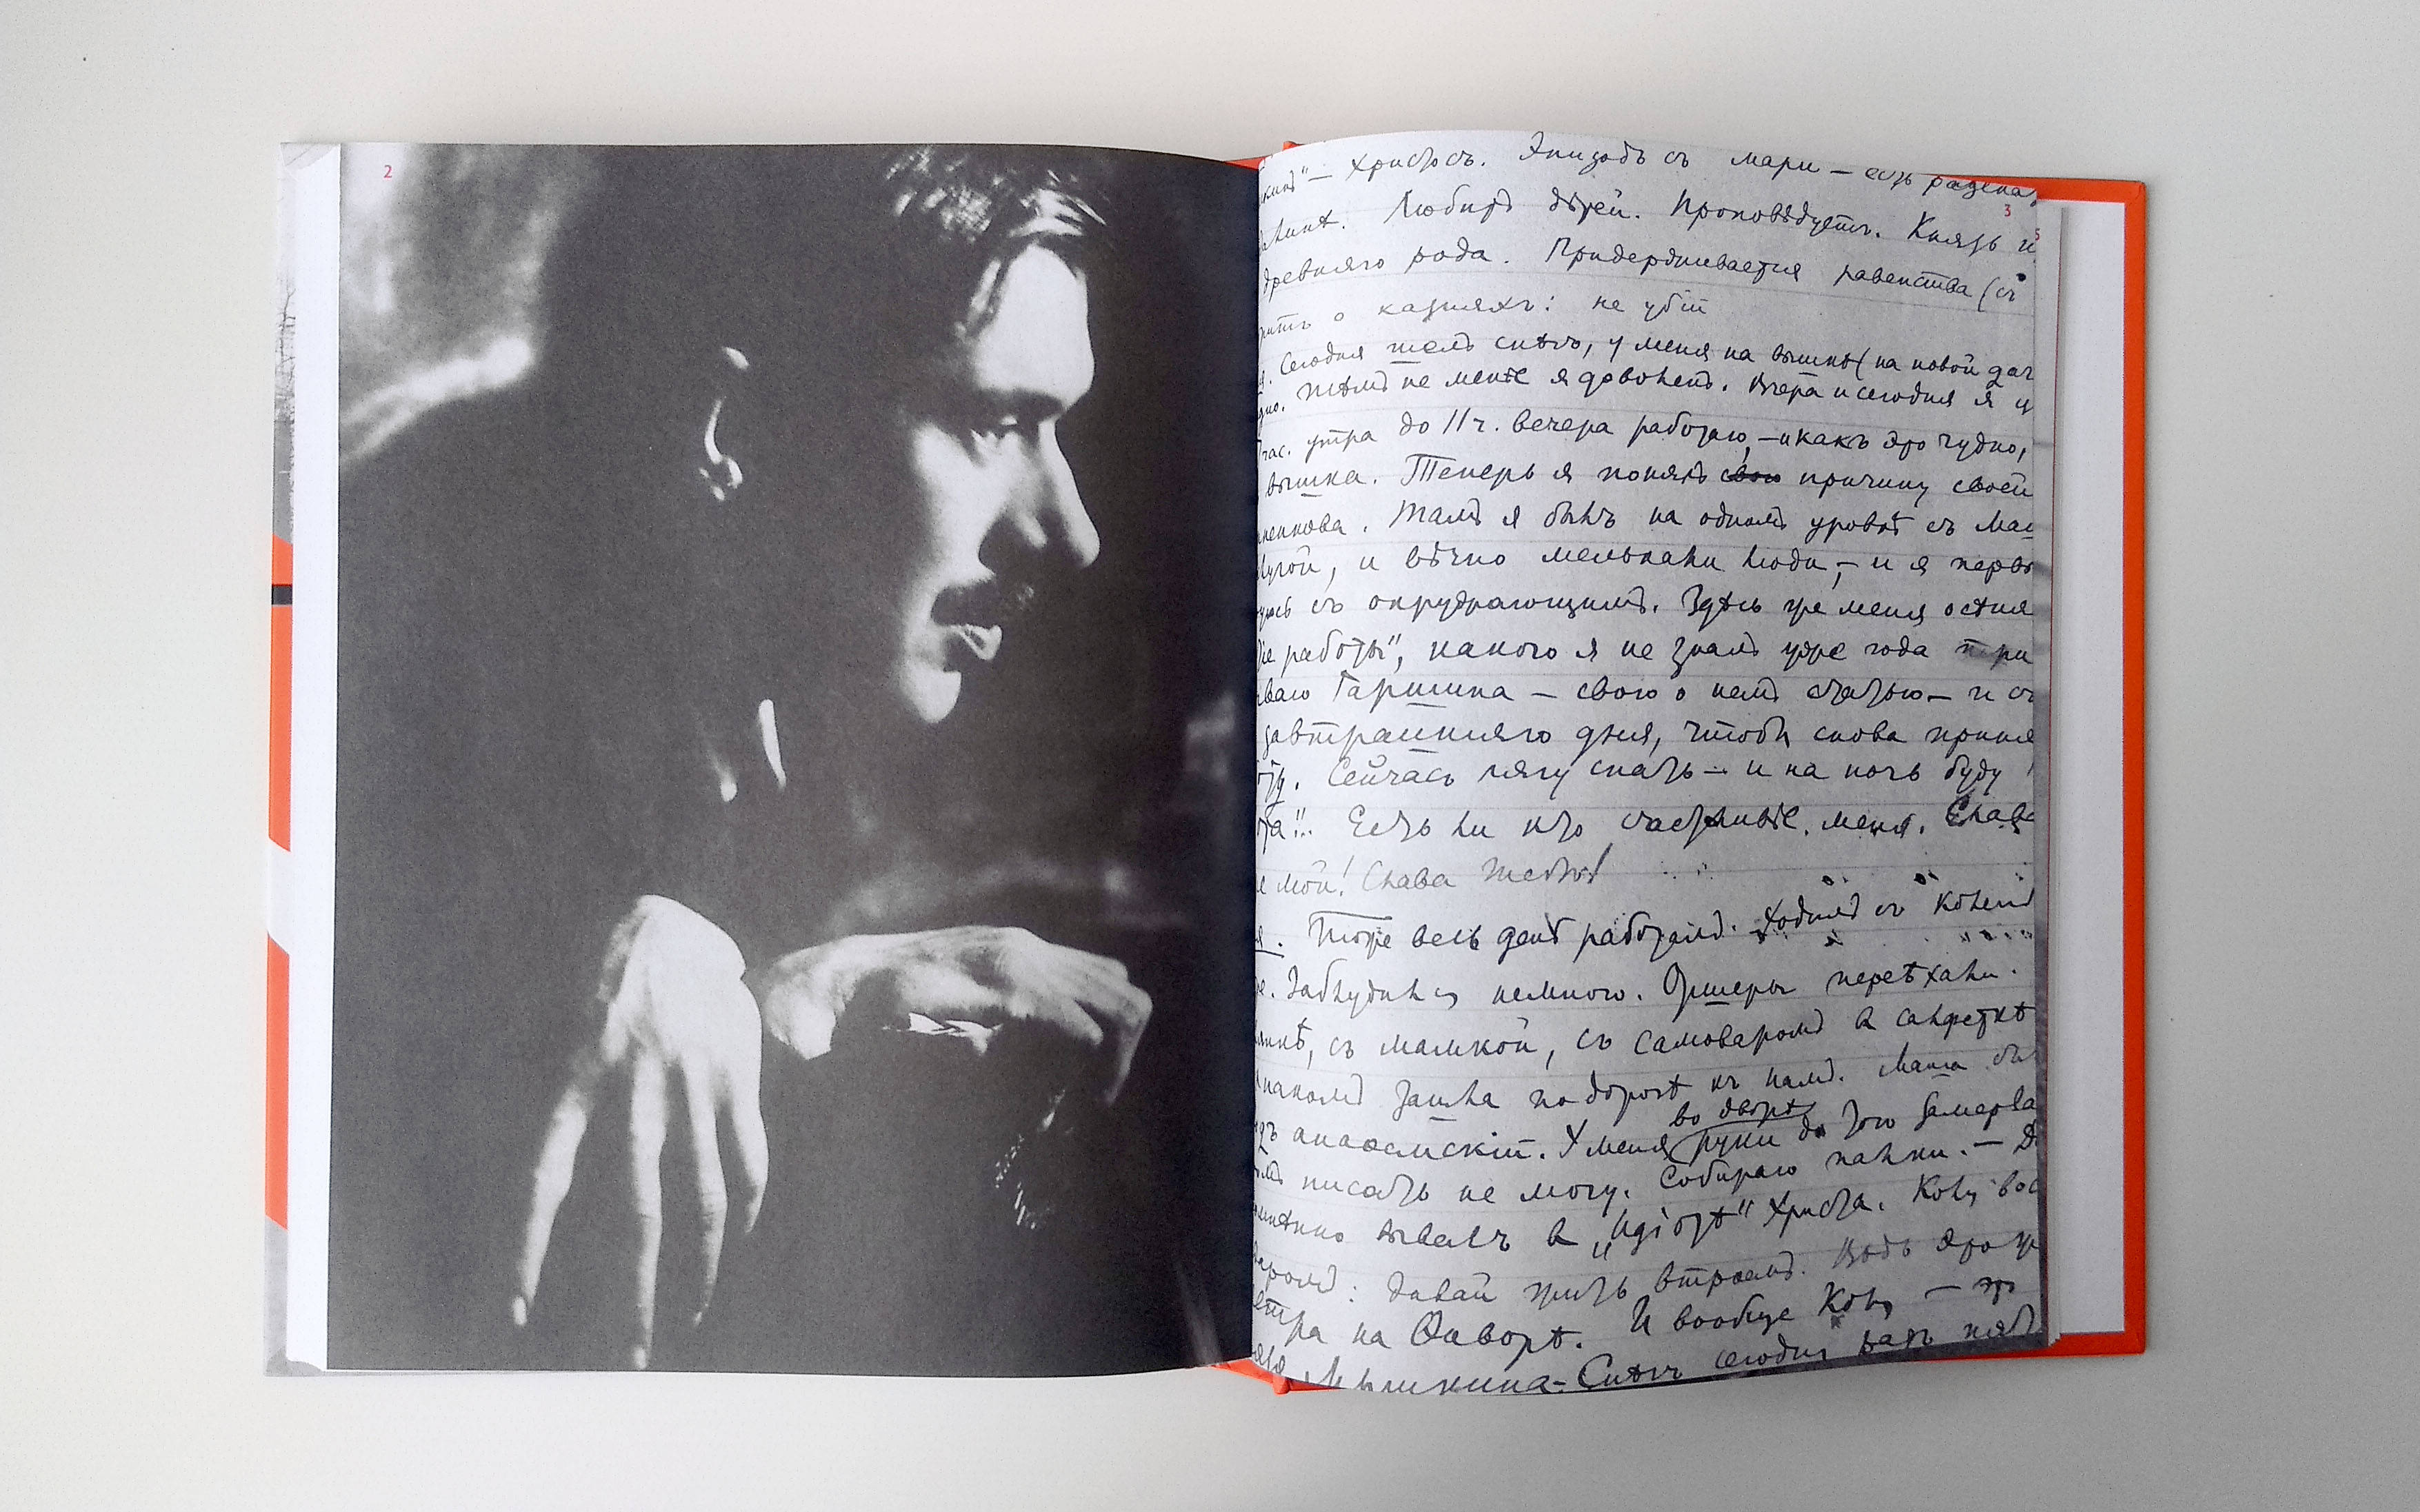 2
кинъ" — Христосъ. Эпизодъ съ Мари — есть
3
Любитъ дѣтей. Проповѣдуетъ. Князь и
древняго рода. Придерживается равенства (съ
о казняхъ: не убій
Сегодня шелъ снѣгъ, у меня на вышкѣ (на новой дач
Тѣмъ не менѣе я доволенъ. Вчера и сегодня я
час. утра до 11 ч. вечера работаю, — и какъ это чудно,
вышка. Теперь я понялъ свою причину своей
ненкова. Тамъ я былъ на одномъ уровнѣ съ Маш
и вѣчно мелькали люди, — и я
съ окружающимъ. Здѣсь же меня осѣня
работы", какого я не зналъ уже года три
Гаршина — свою о немъ статью — и
завтрашняго дня, чтобы снова приня
Сейчасъ лягу спать — и на ночь буду
Есть ли кто счастливѣе меня. Слава
мой! Слава Тебѣ!
Тоже весь день работалъ. Ходилъ съ Колей
Заблудились немного. переѣхали.
съ мамкой, съ самоваромъ въ салфеткѣ
зашла по дорогѣ къ намъ. Маша
во дворѣ
анаѳемскій. У меня руки до того замерз
писать не могу. Собираю палки. —
въ „Идіотѣ" Христа. Колѣ
: давай жить втроемъ. Вѣдь это
на Ѳаворѣ. И вообще Коля — это
Мышкина — Снѣгъ сегодня